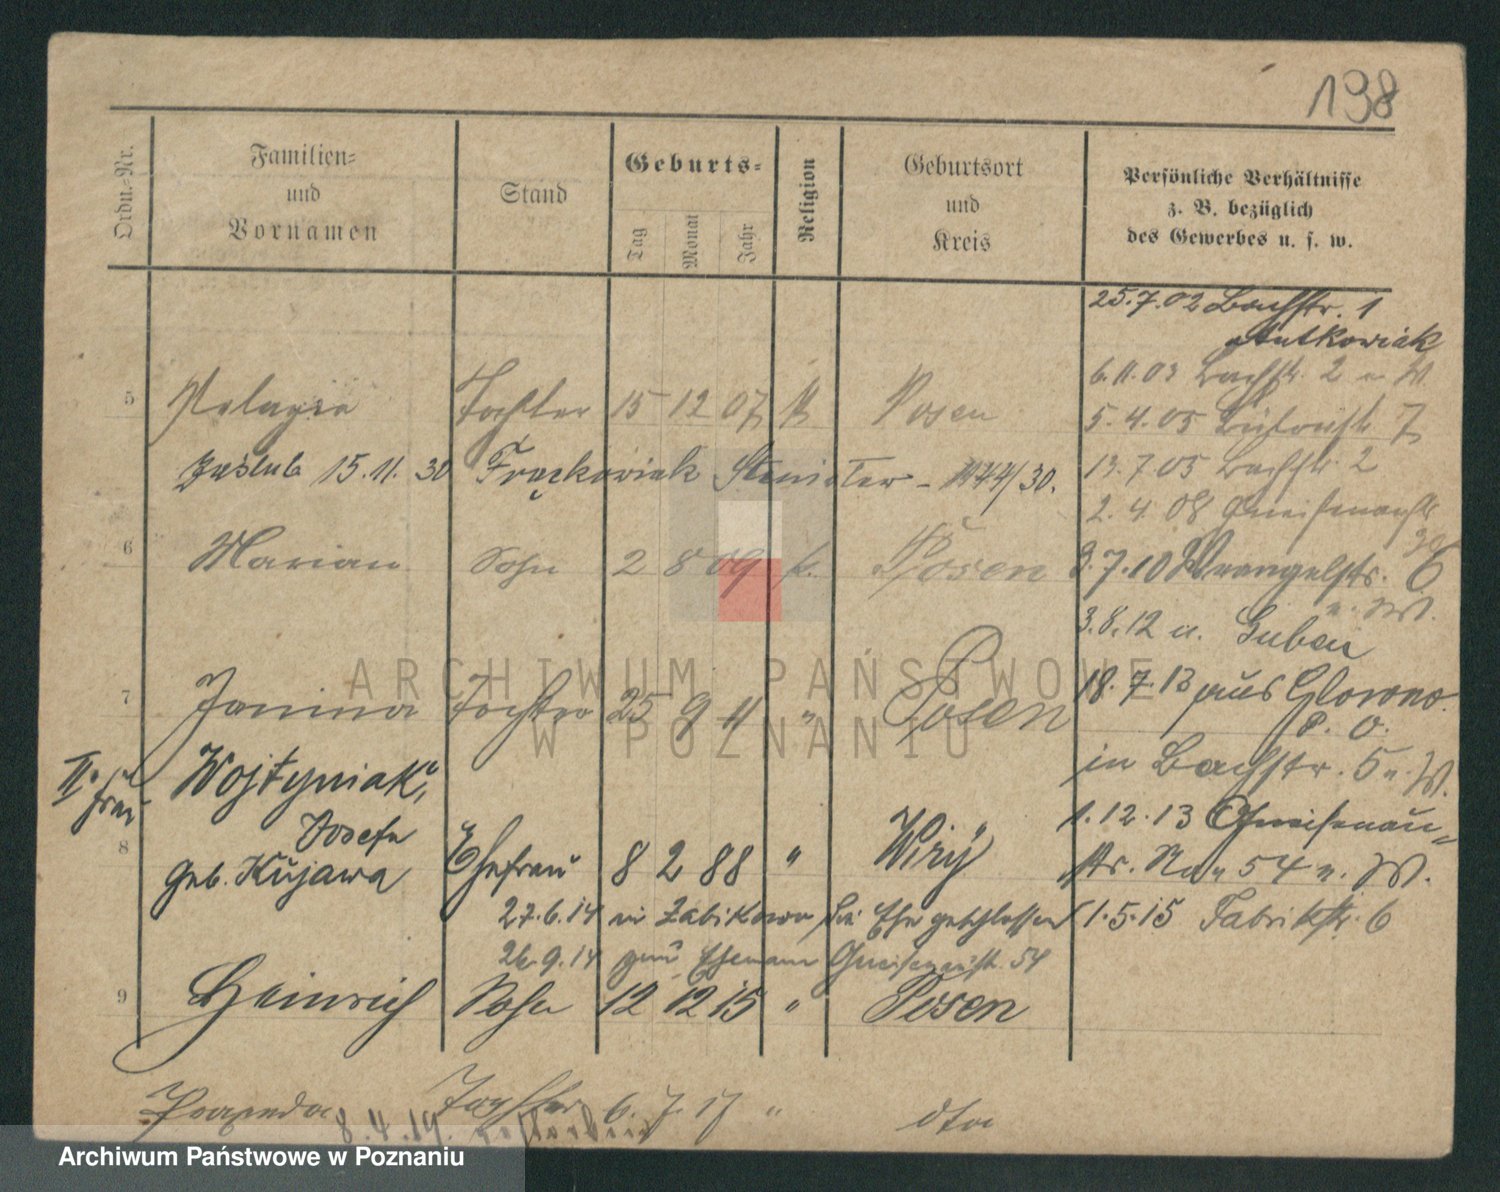 198
Ordn.-Nr.
Familien- und Vornamen
Stand
Geburts-
Tag Monat Jahr
Religion
Geburtsort und Kreis
Persönliche Verhältnisse
z. B. bezüglich
des Gewerbes u. s. w.
25.7.02 Bachstr. 1
6.11.03 Bachstr. 2 u. W.
5 Pelagia Tochter 15 12 07 k Posen
5.4.05 7
Zaślub. 15.11.30 Frąckowiak
13.7.05 Bachstr. 2
2.4.08 Gneisenaustr.
6 Marian Sohn 2 8 09 k. Posen
9.7.10 Wrangelstr. 6
u. W.
3.8.12 n. Guben
7 Janina Tochter 25 9 11 " Posen
18.7.13 aus Glowno
P. O.
in Bachstr. 5 u. W.
II. Frau
Wojtyniak,
Josefa
8 geb. Kujawa Ehefrau 8 2 88 " Wiry
1.12.13 Gneisenau-
str. No 54 u. W.
27.6.14 in Zabikowo die Ehe geschlossen
1.5.15 Fabrikstr. 6
26.9.14 zum Ehemann Gneisenaustr. 54
9 Heinrich Sohn 12 12 15 " Posen
Praxeda Tochter 6. 7. 17 " dto
ARCHIWUM PAŃSTWOWE
W POZNANIU
Archiwum Państwowe w Poznaniu